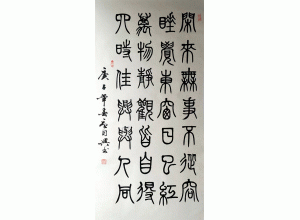 閑來無事不從容
睡覺東窗日已紅
萬物靜觀皆自得
四時佳興與人同